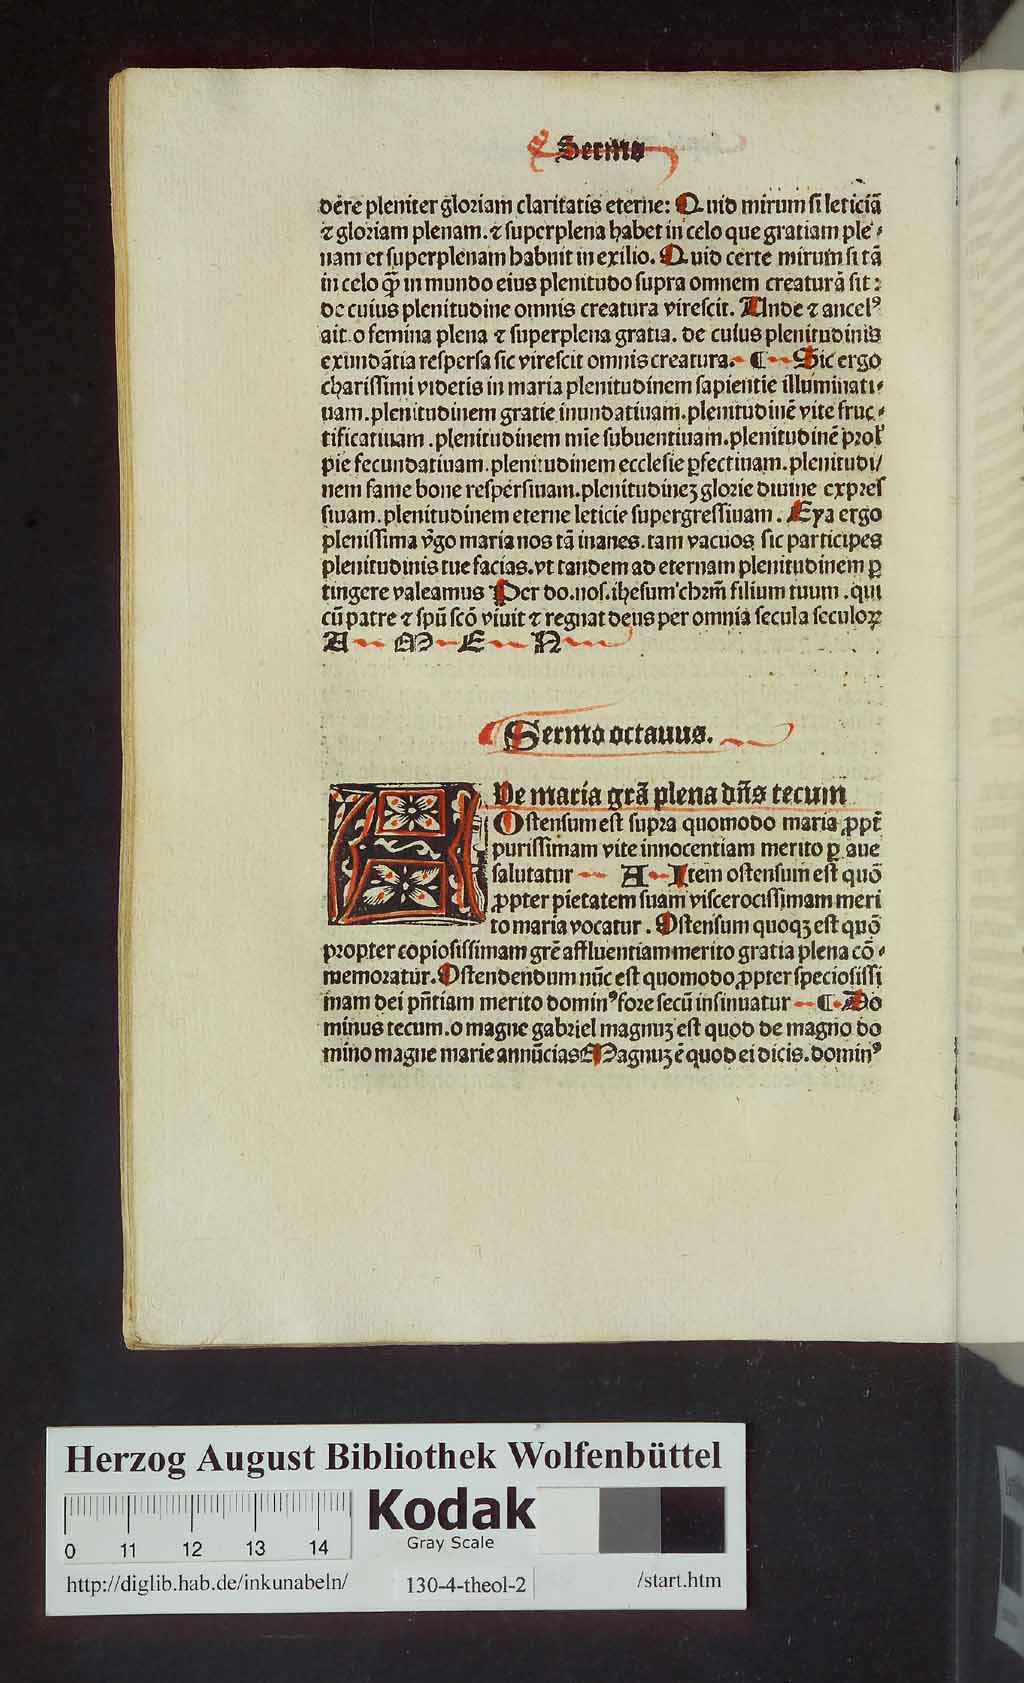 Sermo
dēre pleniter gloriam claritatis eterne: Quid mirum si leticiā
⁊ gloriam plenam. ⁊ superplena habet in celo que gratiam ple⸗
nam et superplenam habuit in exilio. Quid certe mirum si tā
in celo qꝫ̄ in mundo eius plenitudo supra omnem creaturā sit:
de cuius plenitudine omnis creatura virescit. Unde ⁊ ancelꝰ
ait. o femina plena ⁊ superplena gratia. de cuius plenitudinis
exundātia respersa sic virescit omnis creatura. ¶ Sic ergo
charissimi videtis in maria plenitudinem sapientie illuminati⸗
uam. plenitudinem gratie inundatiuam. plenitudinē vite fruc⸗
tificatiuam. plenitudinem mīe subuentiuam. plenitudinē prol'
pie fecundatiuam. plenitudinem ecclesie ꝑfectiuam. plenitudi/
nem fame bone respersiuam. plenitudineꝫ glorie diuine expres
siuam. plenitudinem eterne leticie supergressiuam. Eya ergo
plenissima v̄go maria nos tā inanes. tam vacuos sic participes
plenitudinis tue facias. vt tandem ad eternam plenitudinem ꝑ
tingere valeamus Per do. nos. ihesum chrm̄ filium tuum. qui
cū patre ⁊ spū scō viuit ⁊ regnat deus per omnia secula seculoꝝ
A M E N
Sermo octauus.
AUe maria grā plena dn̄s tecum
Ostensum est supra quomodo maria ꝓpt̄
purissimam vite innocentiam merito ꝑ aue
salutatur A Item ostensum est quō
ꝓpter pietatem suam viscerocissimam meri
to maria vocatur. Ostensum quoqꝫ est quō
propter copiosissimam grē affluentiam merito gratia plena cō⸗
memoratur. Ostendendum nūc est quomodo ꝓpter speciosissi
mam dei pn̄tiam merito dominꝰ fore secū insinuatur ¶ Do
minus tecum. o magne gabriel magnuꝫ est quod de magno do
mino magne marie annūcias Magnuꝫ ē quod ei dicis. dominꝰ
Herzog August Bibliothek Wolfenbüttel
Kodak
Gray Scale
0 11 12 13 14
http://diglib.hab.de/inkunabeln/ 130-4-theol-2 /start.htm